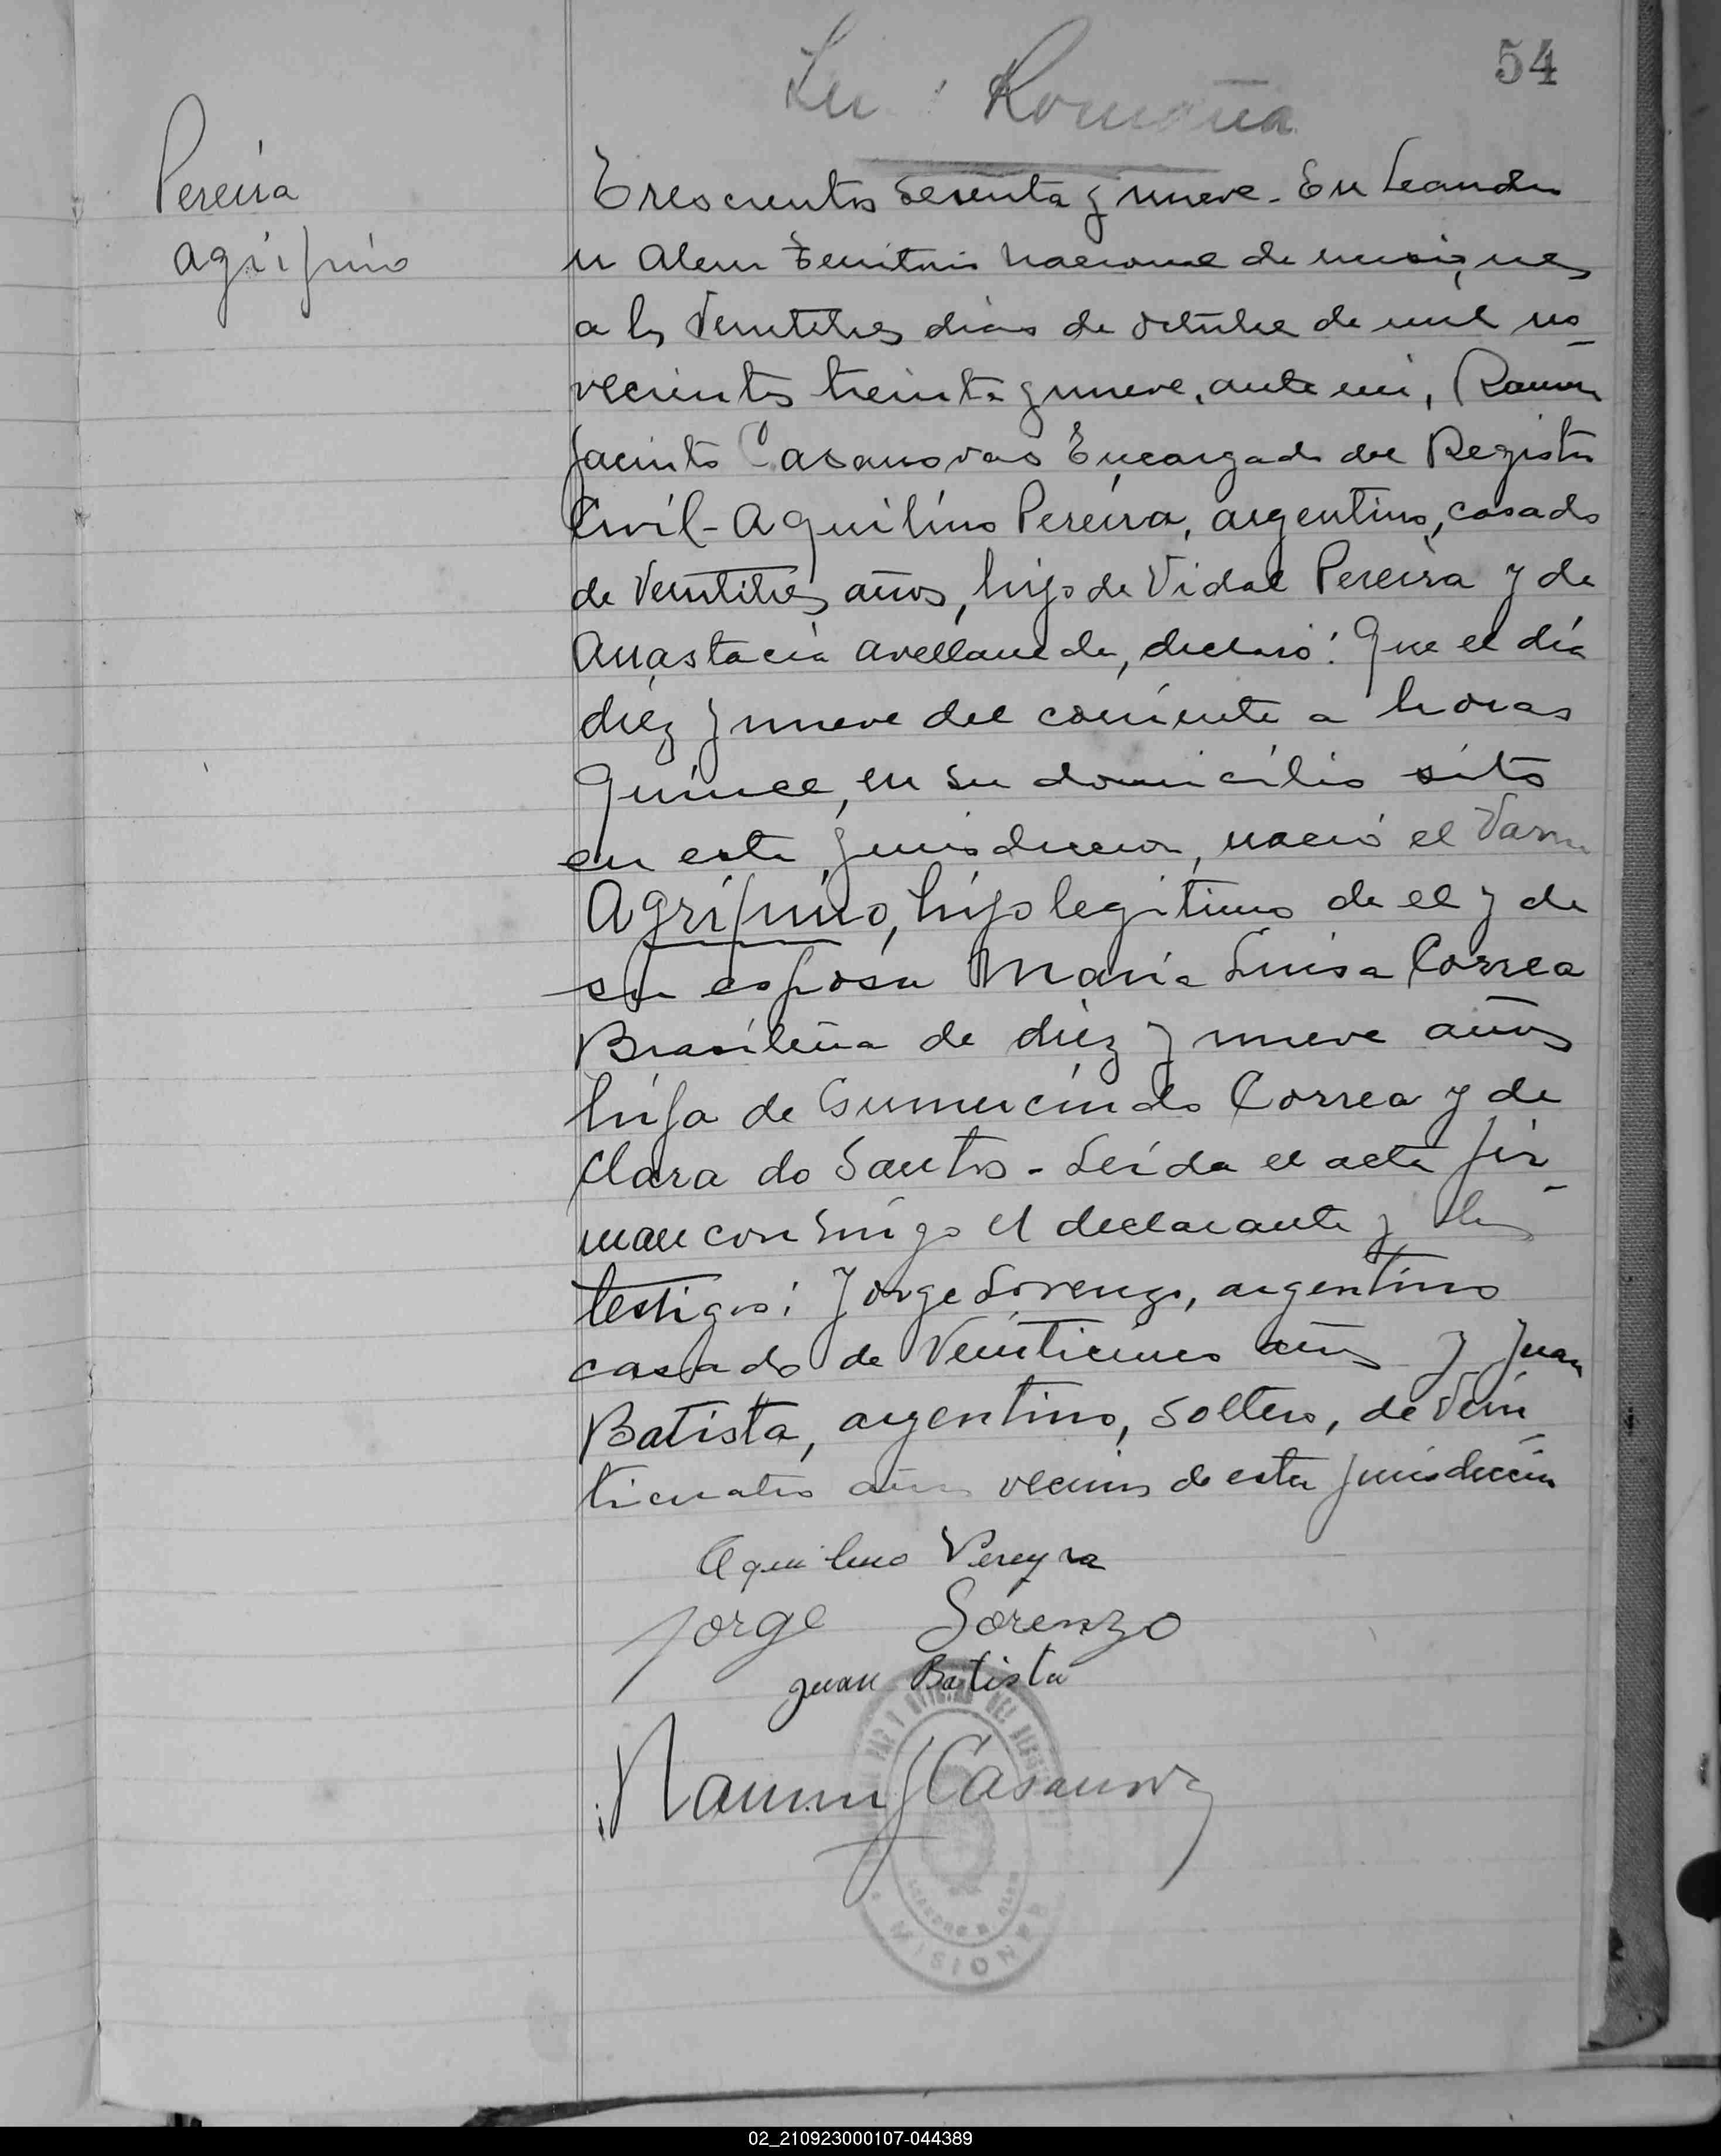 54
Romaña
Pereira
Agripino
Trescientos setenta y nueve - En Leandro
N Alem Territorio Nacional de Misiones
a los Veintitres dias de octubre de mil no-
vecientos treinta y nueve, ante mi, Ramon
Jacinto Casanovas Encargado del Registro
Civil - Aquilino Pereira, argentino, casado
de Veintitres años, hijo de Vidal Pereira y de
Anastacia Avellaneda, declaró: Que el día
diez y nueve del corriente a horas
Quince, en su domicilio sito
en esta jurisdiccion, nació el Varon
Agripino, hijo legitimo de el y de
su esposa Maria Luisa Correa
Brasileña de diez y nueve años
hija de Gumercindo Correa y de
Clara do Santos - Leída el acta fir-
man conmigo el declarante y los
testigos: Jorge Lorenzo, argentino
casado de Veinticinco años y Juan
Batista, argentino, soltero, de Vein-
ticuatro años vecinos de esta jurisdicción
Aquilino Pereyra
Jorge Lorenzo
Juan Batista
Ramon J Casanovas
MISIONES
02_210923000107-044389